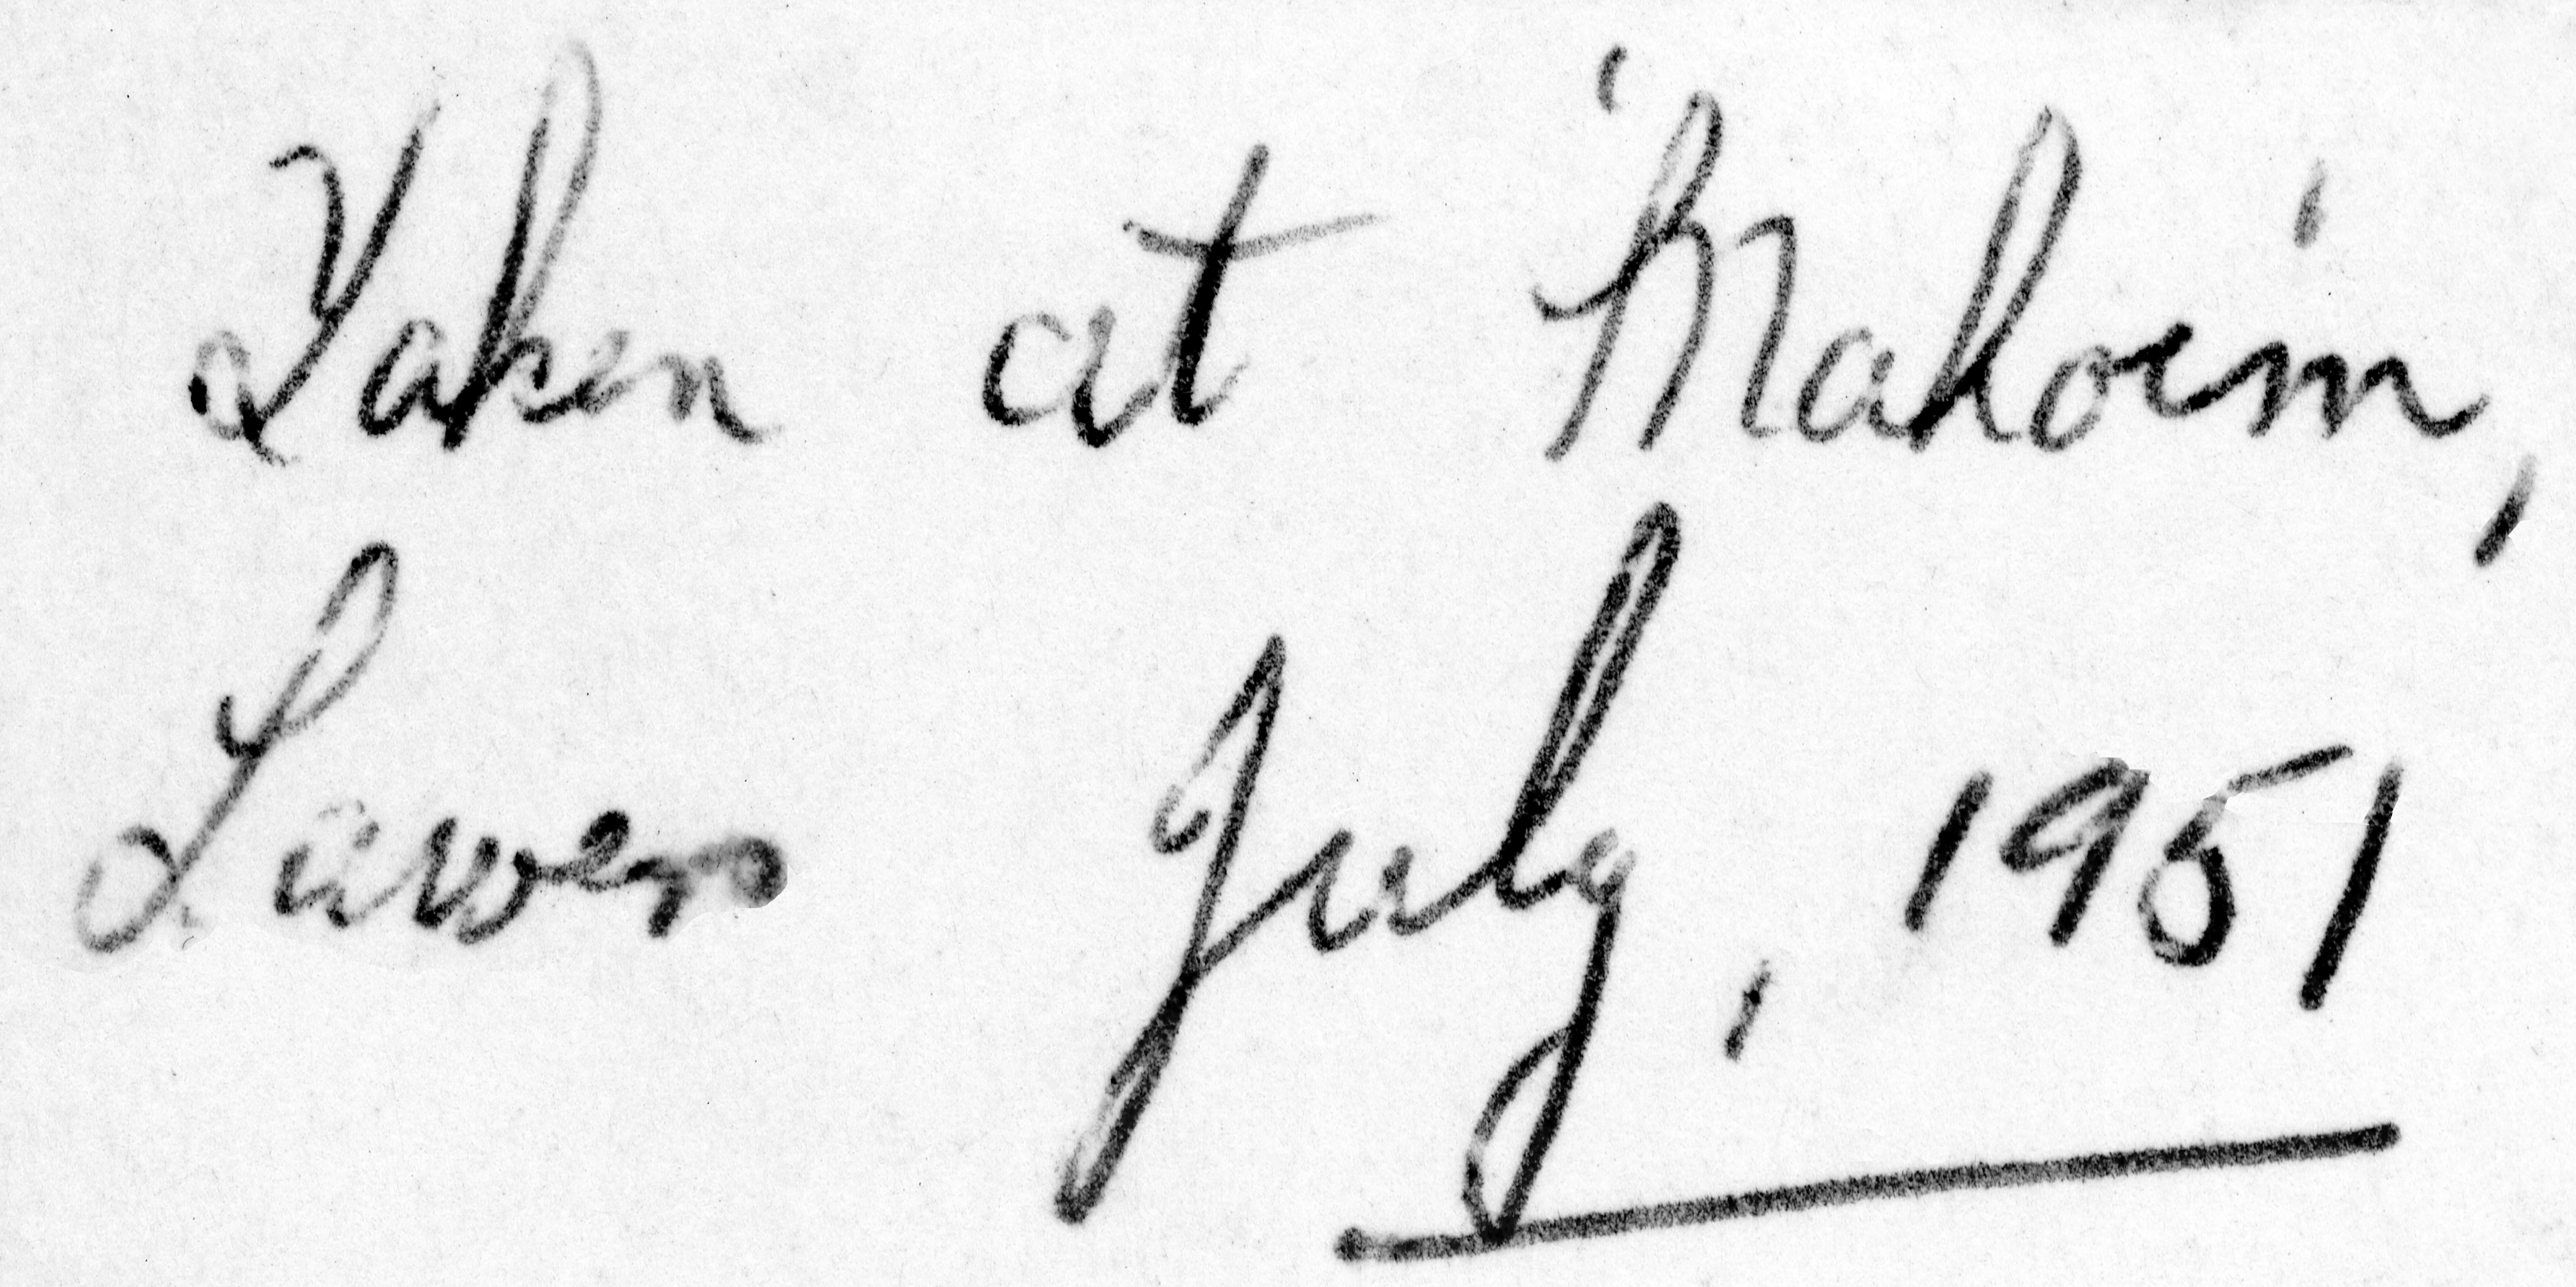 Taken at
Lawers July, 1951